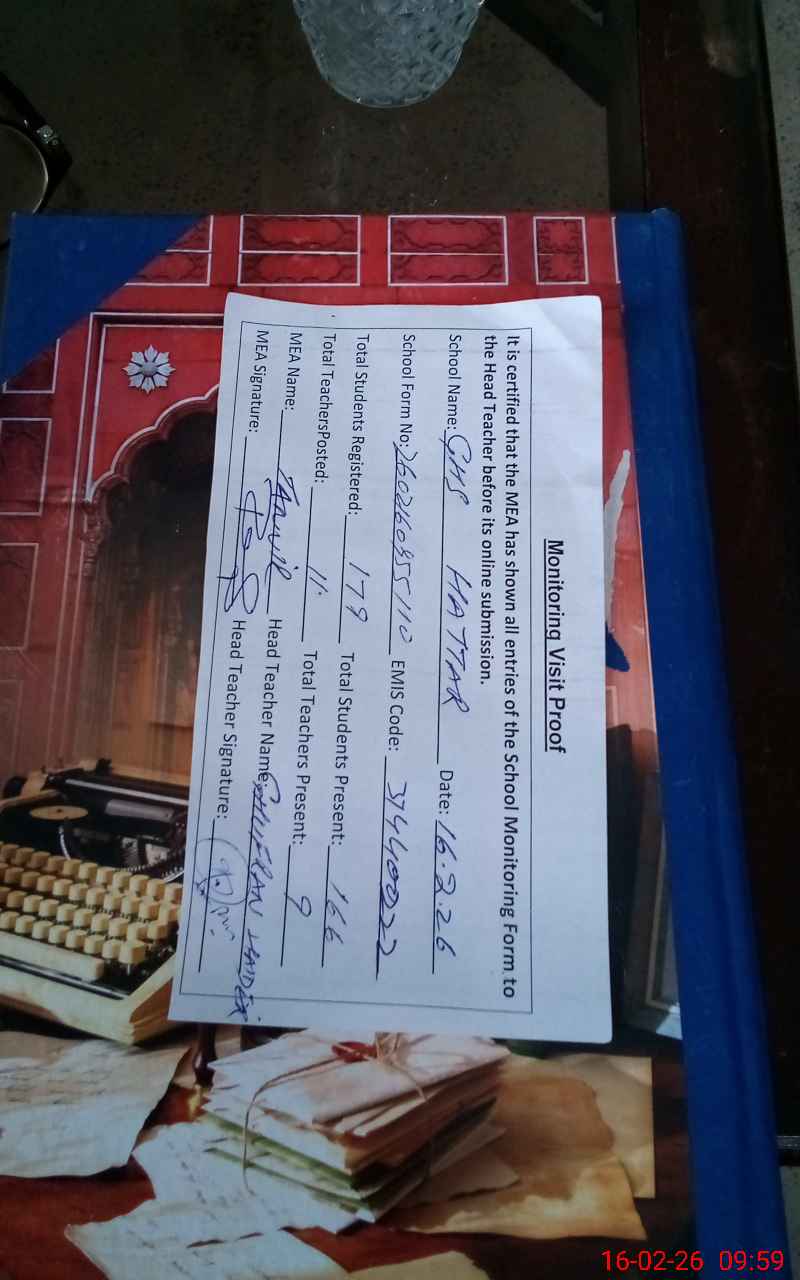 Monitoring Visit Proof
It is certified that the MEA has shown all entries of the School Monitoring Form to
the Head Teacher before its online submission.
School Name: GHS HATTAR Date: 16.2.26
School Form No: EMIS Code: 37440022
Total Students Registered: 179 Total Students Present: 166
Total TeachersPosted: 11 Total Teachers Present: 9
MEA Name: Head Teacher Name: GHUFRAN
MEA Signature: Head Teacher Signature:
16-02-26 09:59